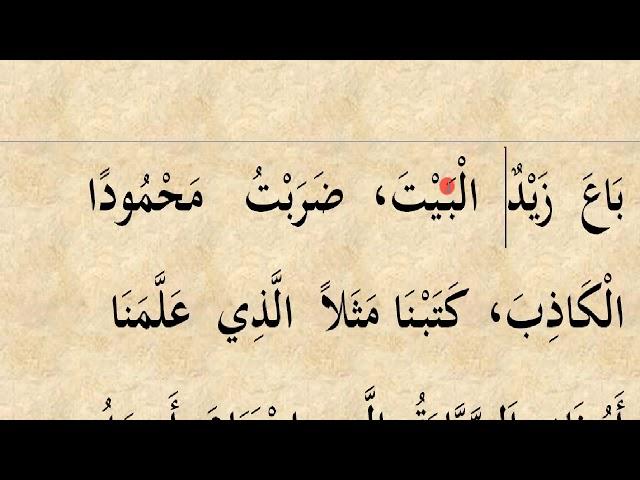 بَاعَ زَيْدٌ الْبَيْتَ، ضَرَبْتُ مَحْمُودًا
الْكَاذِبَ، كَتَبْنَا مَثَلاً الَّذِي عَلَّمَنَا